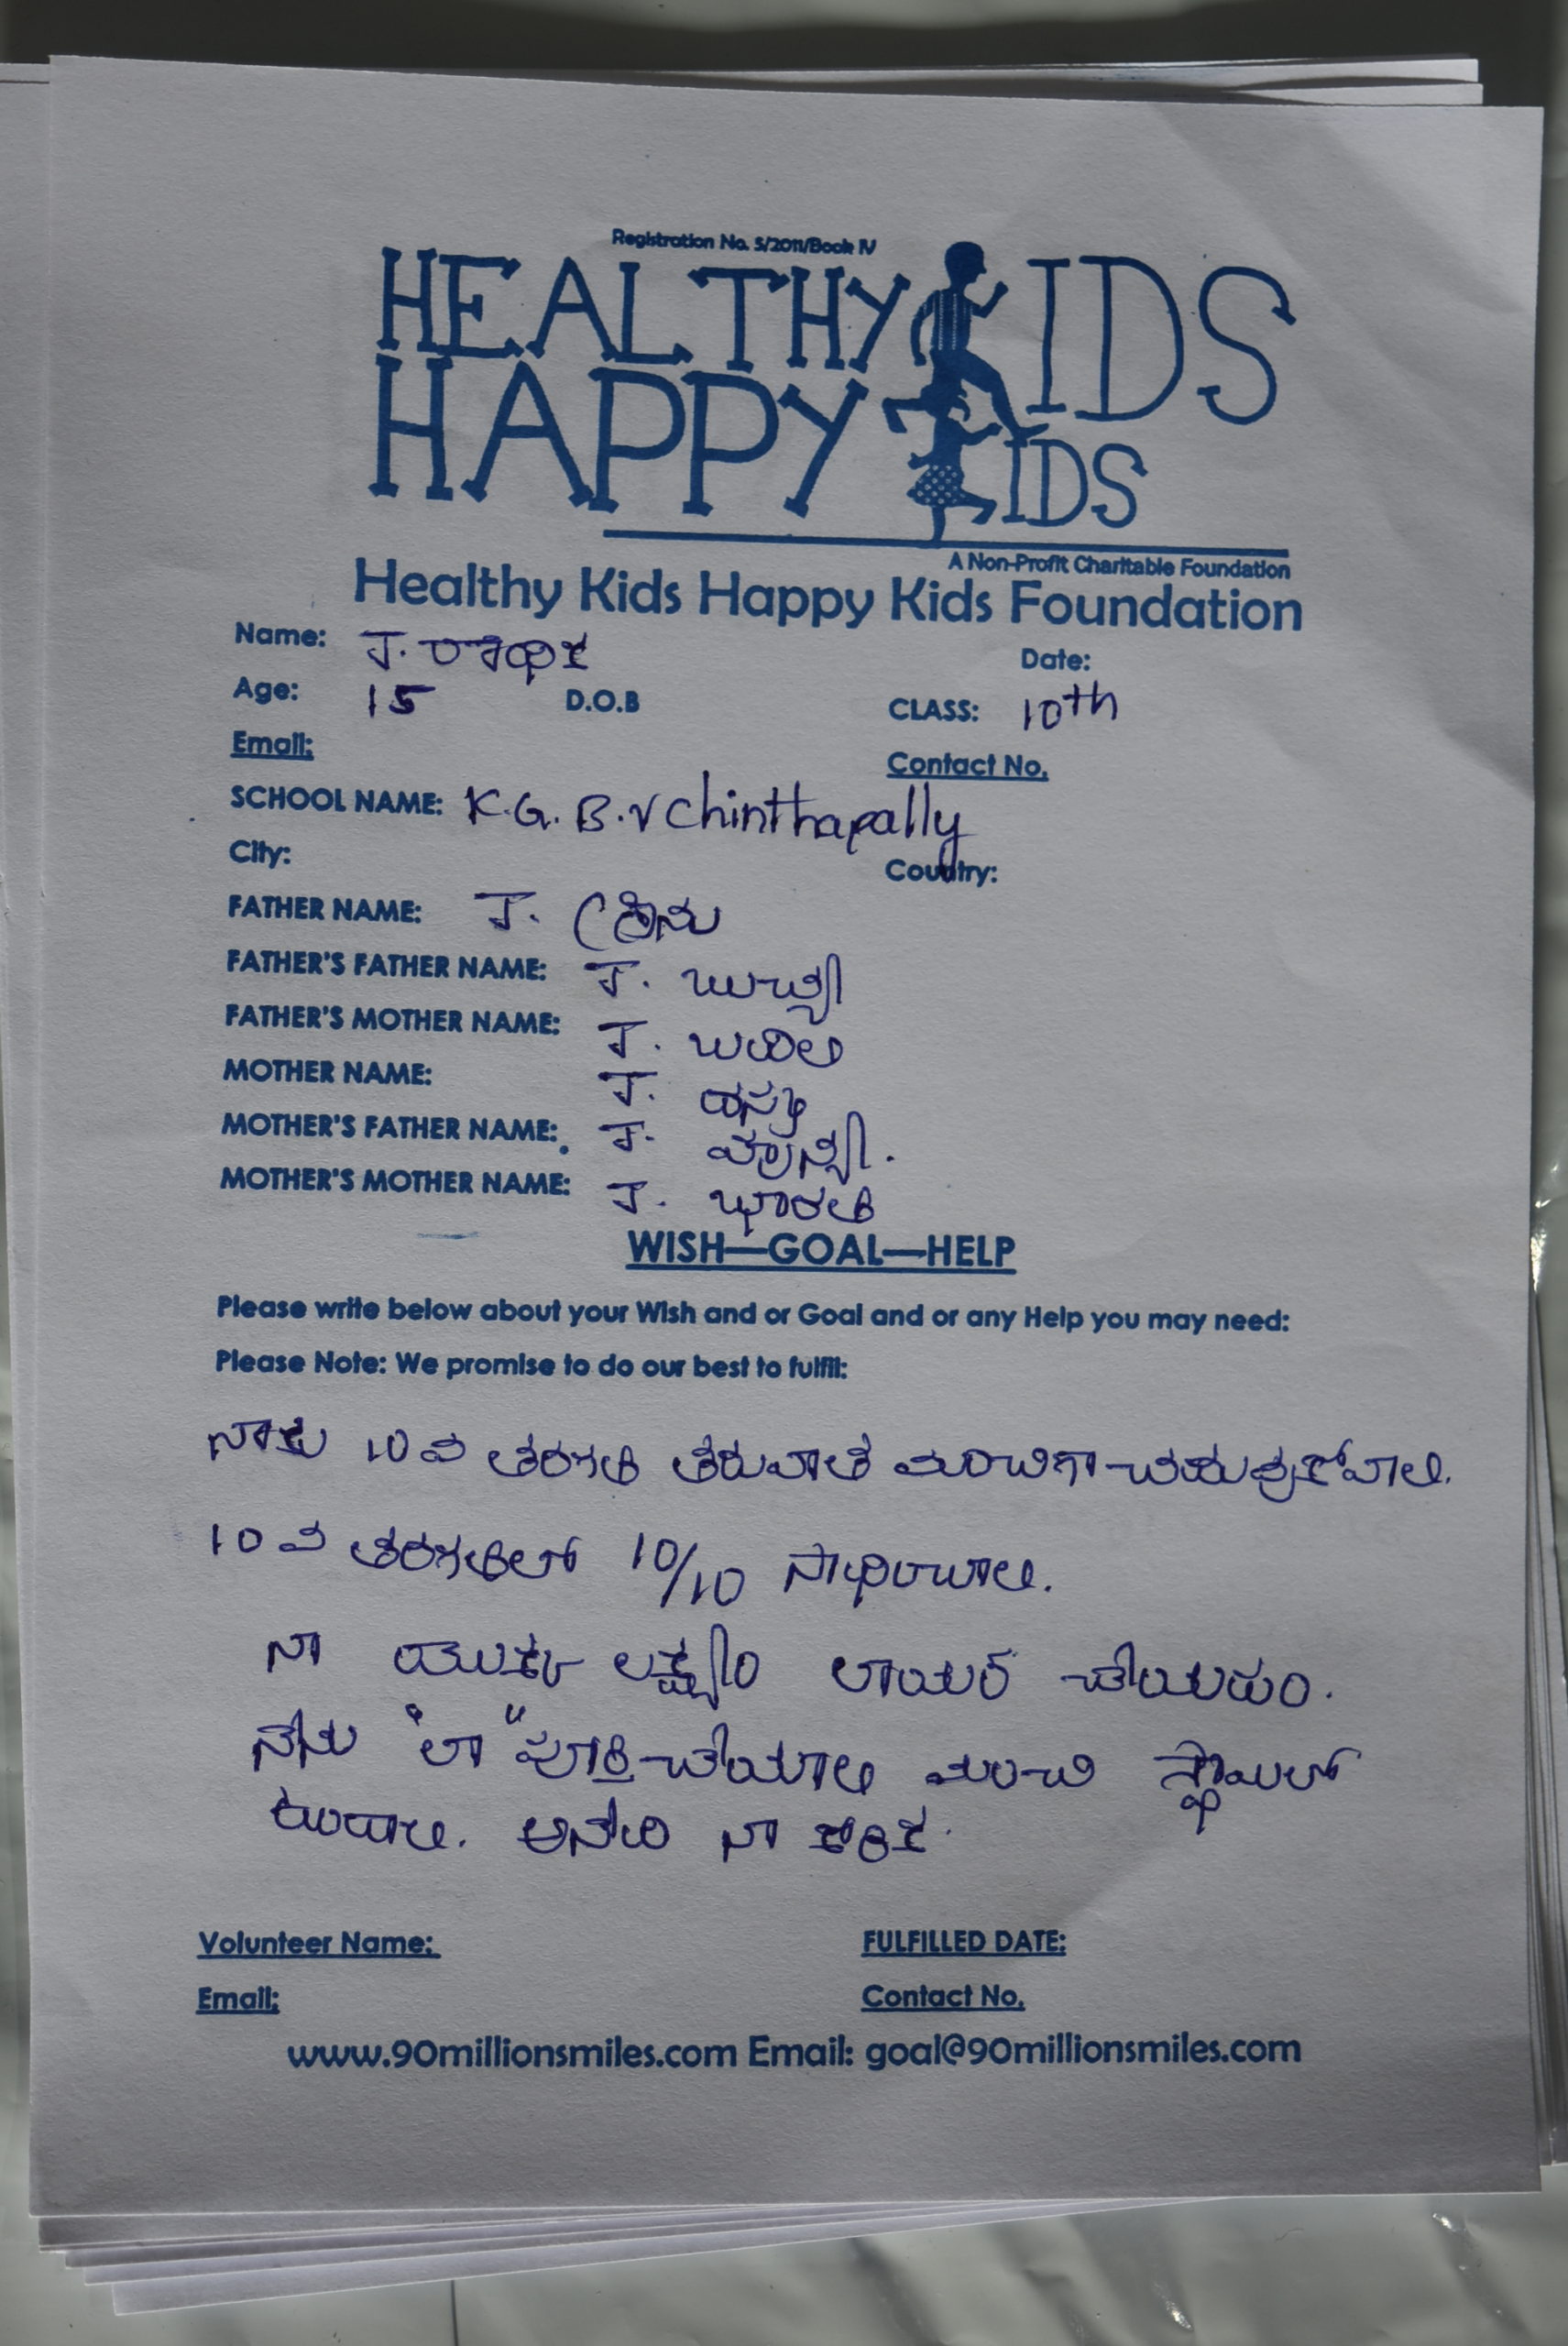 Registration No. 5/2011/Book IV
HEALTHY KIDS
HAPPY KIDS
A Non-Profit Charitable Foundation
Healthy Kids Happy Kids Foundation
Name: J. రాధిక
Date:
Age: 15 D.O.B CLASS: 10th
Email: Contact No.
SCHOOL NAME: K.G.B.V Chinthapally
City: Country:
FATHER NAME: J. శ్రీను
FATHER'S FATHER NAME: J. బుచ్చి
FATHER'S MOTHER NAME: J.
MOTHER NAME: J.
MOTHER'S FATHER NAME: J.
MOTHER'S MOTHER NAME: J. భారతి
WISH—GOAL—HELP
Please write below about your Wish and or Goal and or any Help you may need:
Please Note: We promise to do our best to fulfil:
నాకు 10వ తరగతి తరువాత మంచిగా చదువుకోవాలి.
10వ తరగతిలో 10/10 సాధించాలి.
నా యొక్క లక్ష్యం లాయర్ చేయడం.
నేను "లా" పూర్తి చేయాలి మంచి స్థాయిలో
ఉండాలి. అనేది నా కోరిక.
Volunteer Name: FULFILLED DATE:
Email: Contact No.
www.90millionsmiles.com Email: goal@90millionsmiles.com